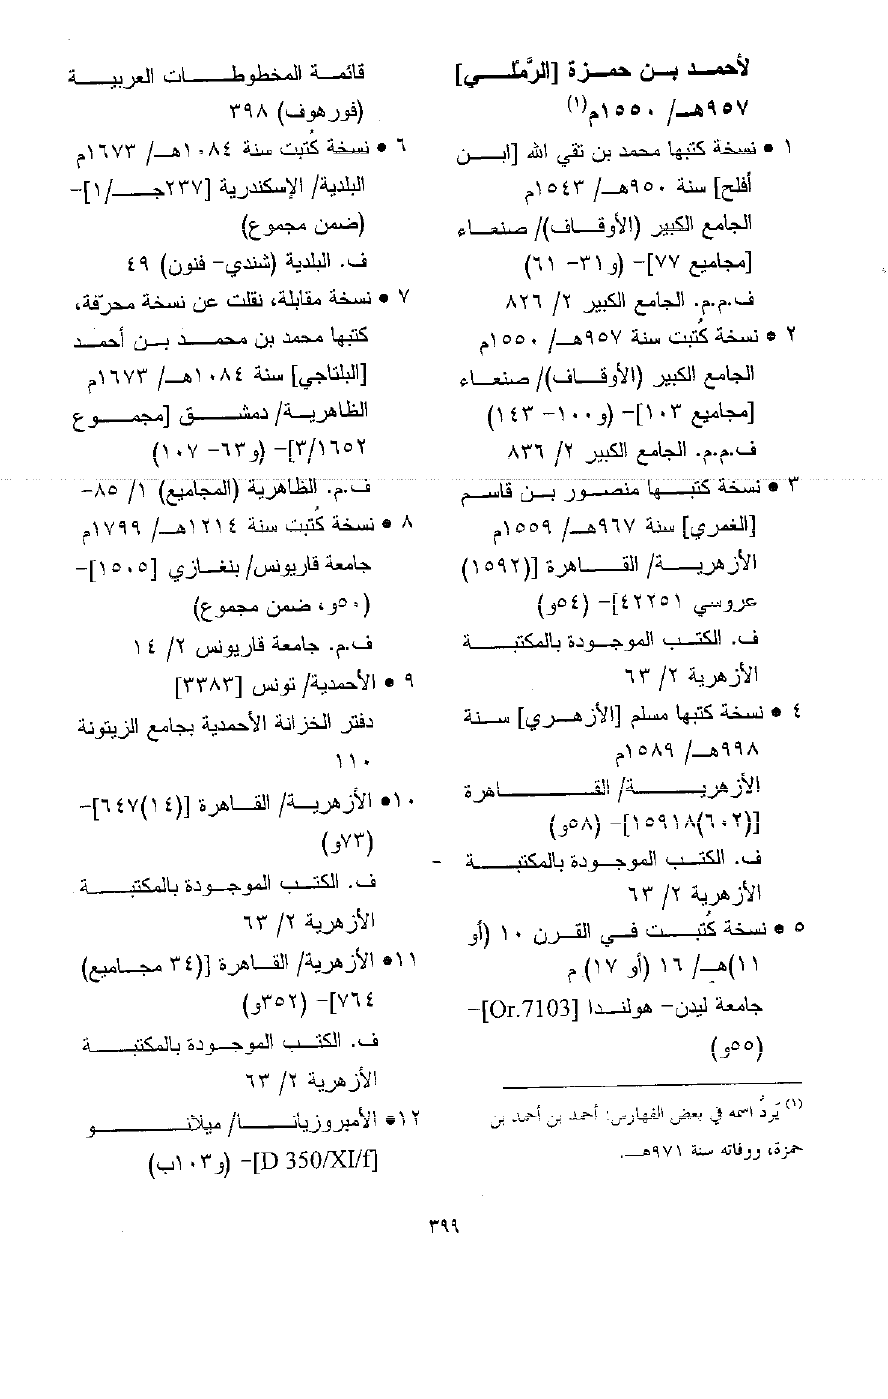 لأحمد بن حمزة [الرَّمْلي]
٩٥٧هـ/ ١٥٥٠م(١)
١ • نسخة كتبها محمد بن تقي الله [ابن
أفلح] سنة ٩٥٠هـ/ ١٥٤٣م
الجامع الكبير (الأوقاف)/ صنعاء
[مجاميع ٧٧]- (و٣١- ٦١)
ف.م.م. الجامع الكبير ٢/ ٨٢٦
٢ • نسخة كُتبت سنة ٩٥٧هـ/ ١٥٥٠م
الجامع الكبير (الأوقاف)/ صنعاء
[مجاميع ١٠٣]- (و١٠٠- ١٤٣)
ف.م.م. الجامع الكبير ٢/ ٨٣٦
٣ • نسخة كتبها منصور بن قاسم
[الغمري] سنة ٩٦٧هـ/ ١٥٥٩م
الأزهرية/ القاهرة [(١٥٩٢)
عروسي ٤٢٢٥١]- (٥٤و)
ف. الكتب الموجودة بالمكتبة
الأزهرية ٢/ ٦٣
٤ • نسخة كتبها مسلم [الأزهري] سنة
٩٩٨هـ/ ١٥٨٩م
الأزهرية/ القاهرة
[(٦٠٢)١٥٩١٨]- (٥٨و)
ف. الكتب الموجودة بالمكتبة
الأزهرية ٢/ ٦٣
٥ • نسخة كُتبت في القرن ١٠ (أو
١١)هـ/ ١٦ (أو ١٧) م
جامعة ليدن- هولندا [Or.7103]-
(٥٥و)
(١) يَردُ اسمه في بعض الفهارس: أحمد بن أحمد بن
حمزة، ووفاته سنة ٩٧١هـ.
قائمة المخطوطات العربية
(فورهوف) ٣٩٨
٦ • نسخة كُتبت سنة ١٠٨٤هـ/ ١٦٧٣م
البلدية/ الإسكندرية [٢٣٧جـ/١]-
(ضمن مجموع)
ف. البلدية (شندي- فنون) ٤٩
٧ • نسخة مقابلة، نقلت عن نسخة محرّفة،
كتبها محمد بن محمد بن أحمد
[البلتاجي] سنة ١٠٨٤هـ/ ١٦٧٣م
الظاهرية/ دمشق [مجموع
٣/١٦٥٢]- (و٦٣- ١٠٧)
ف.م. الظاهرية (المجاميع) ١/ ٨٥-
٨ • نسخة كُتبت سنة ١٢١٤هـ/ ١٧٩٩م
جامعة قاريونس/ بنغازي [١٥٠٥]-
(٥٠و، ضمن مجموع)
ف.م. جامعة قاريونس ٢/ ١٤
٩ • الأحمدية/ تونس [٣٣٨٣]
دفتر الخزانة الأحمدية بجامع الزيتونة
١١٠
١٠• الأزهرية/ القاهرة [(١٤)٦٤٧]-
(٧٣و)
ف. الكتب الموجودة بالمكتبة
الأزهرية ٢/ ٦٣
١١• الأزهرية/ القاهرة [(٣٤ مجاميع)
٧٦٤]- (٣٥٢و)
ف. الكتب الموجودة بالمكتبة
الأزهرية ٢/ ٦٣
١٢• الأمبروزيانا/ ميلانو
[D 350/XI/f]- (و١٠٣ب)
٣٩٩